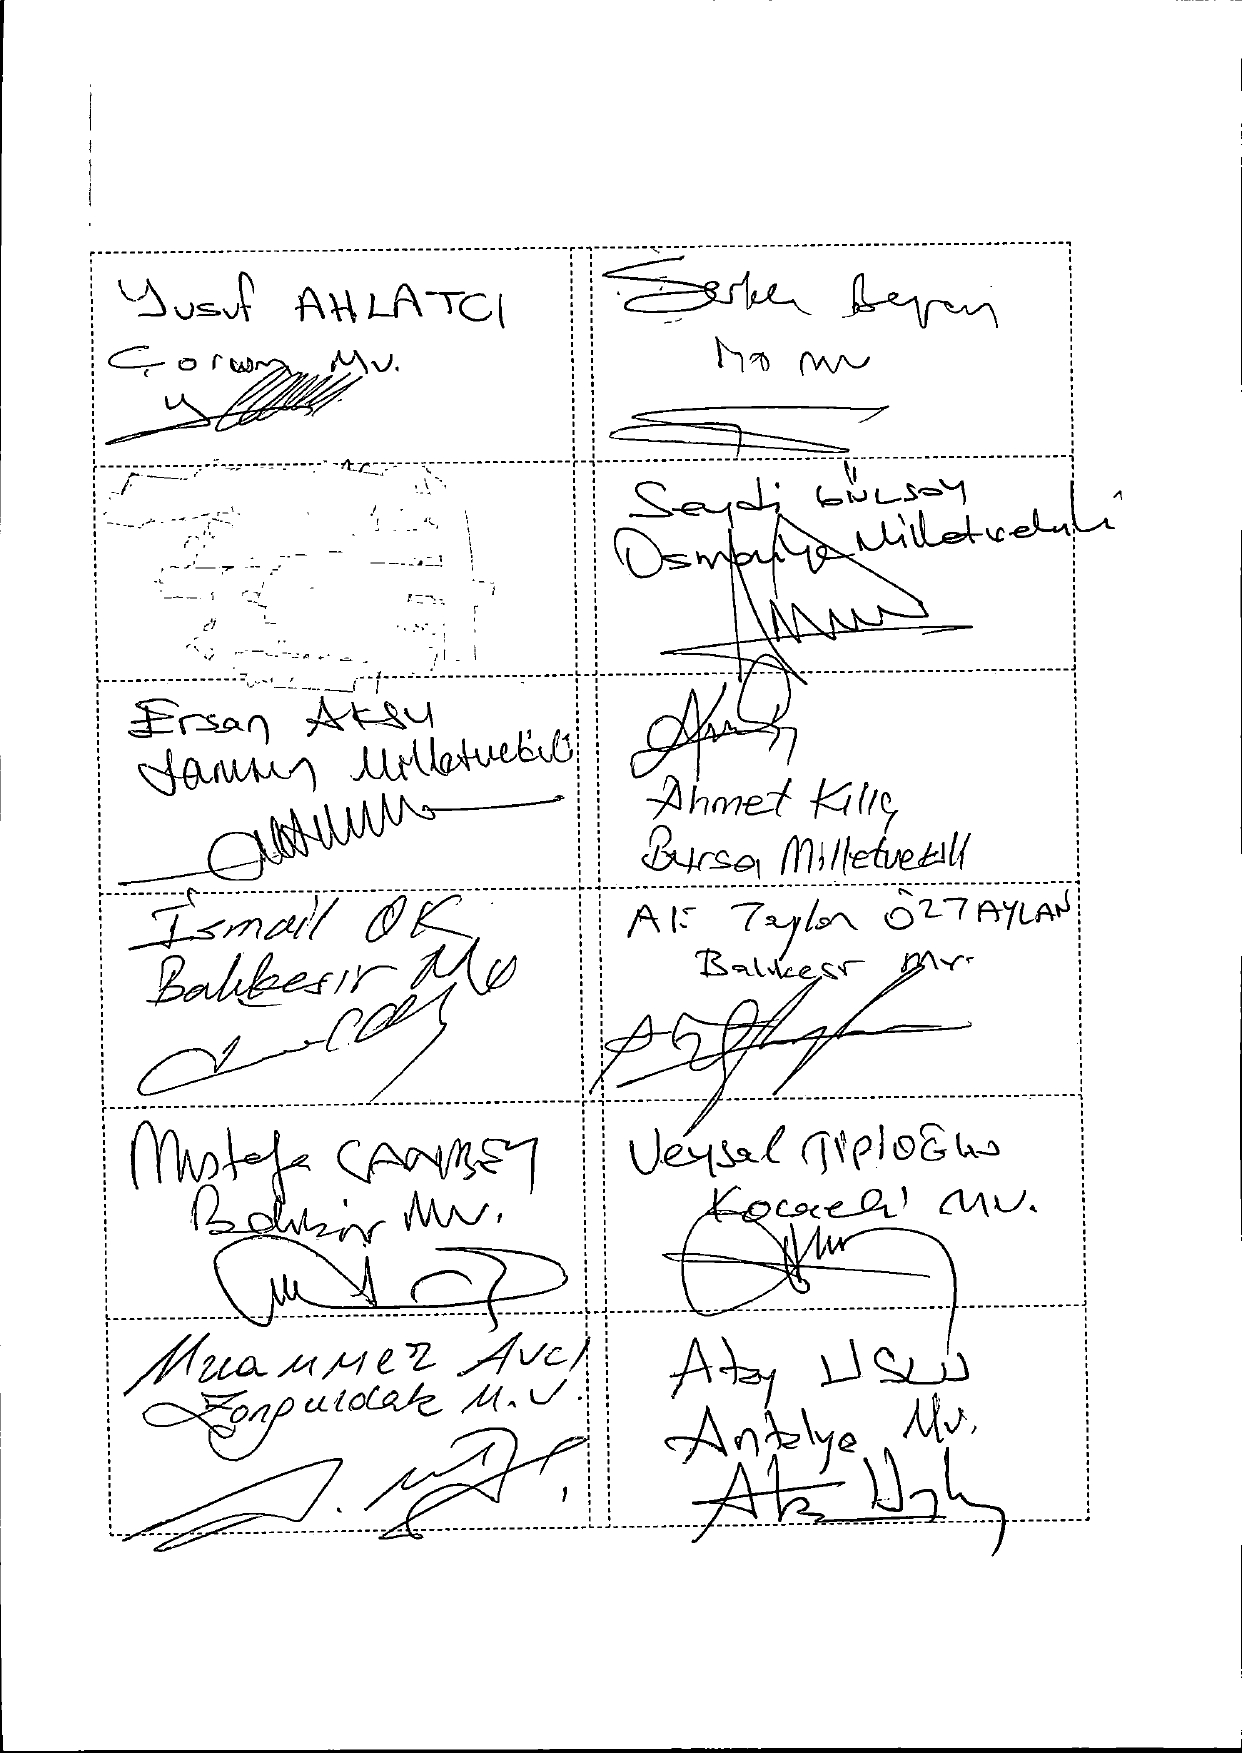 Yusuf AHLATCI
Çorum Mv.
Serkan Bayram
Seydi GÜLSOY
Osmaniye Milletvekili
Ersan AKSU
Samsun Milletvekili
Ahmet Kılıç
Bursa Milletvekili
İsmail OK
Balıkesir Mv
Ali Taylan ÖZTAYLAN
Balıkesir Mv.
Mustafa CANBEY
Balıkesir Mv.
Veysal TİPİOĞLU
Kocaeli Mv.
Muammer Avcı
Zonguldak M.V.
Atay USLU
Antalya Mv.